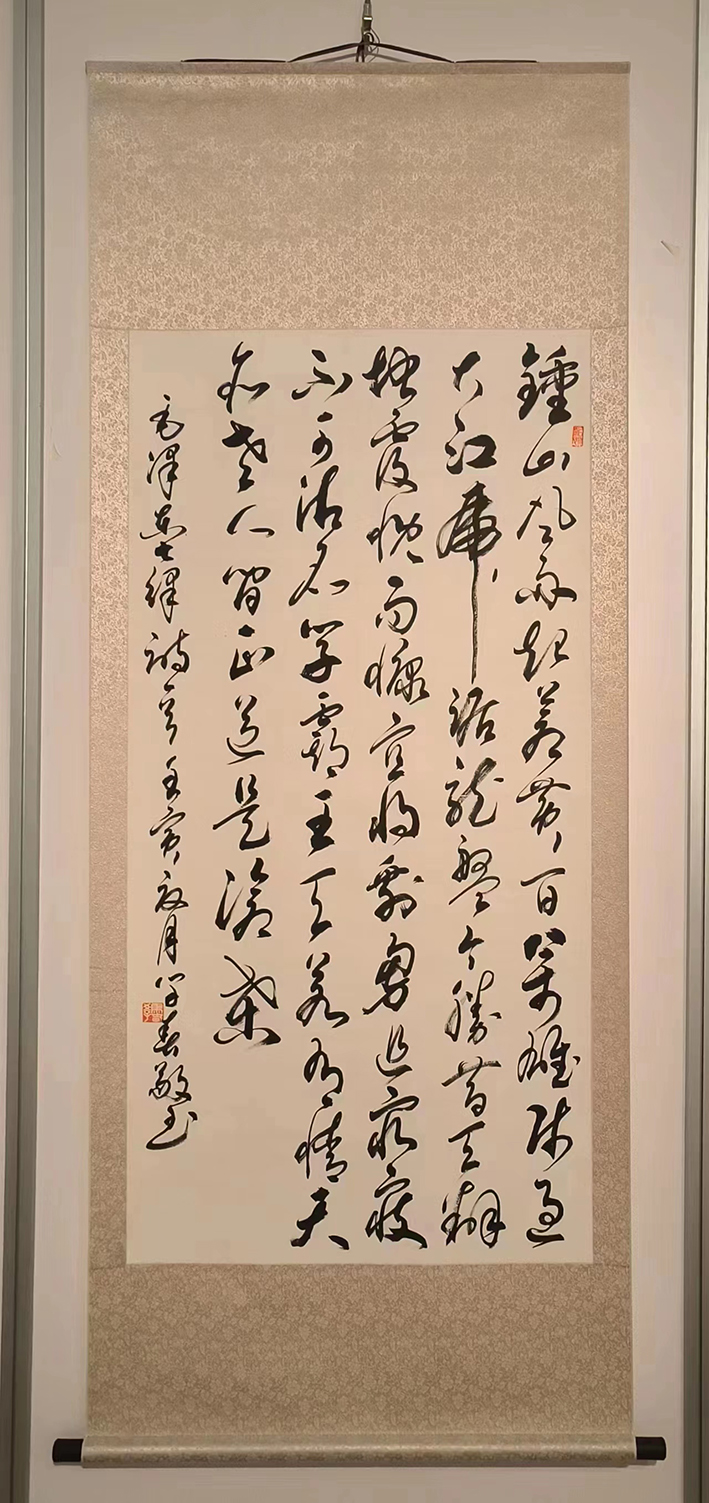 鍾山风雨起蒼黄百萬雄师过
大江虎踞龍盤今勝昔天翻
地覆慨而慷宜将剩勇追窮寇
不可沽名学霸王天若有情天
亦老人间正道是滄桑
毛澤东七律詩一首壬寅夏月学春敬书